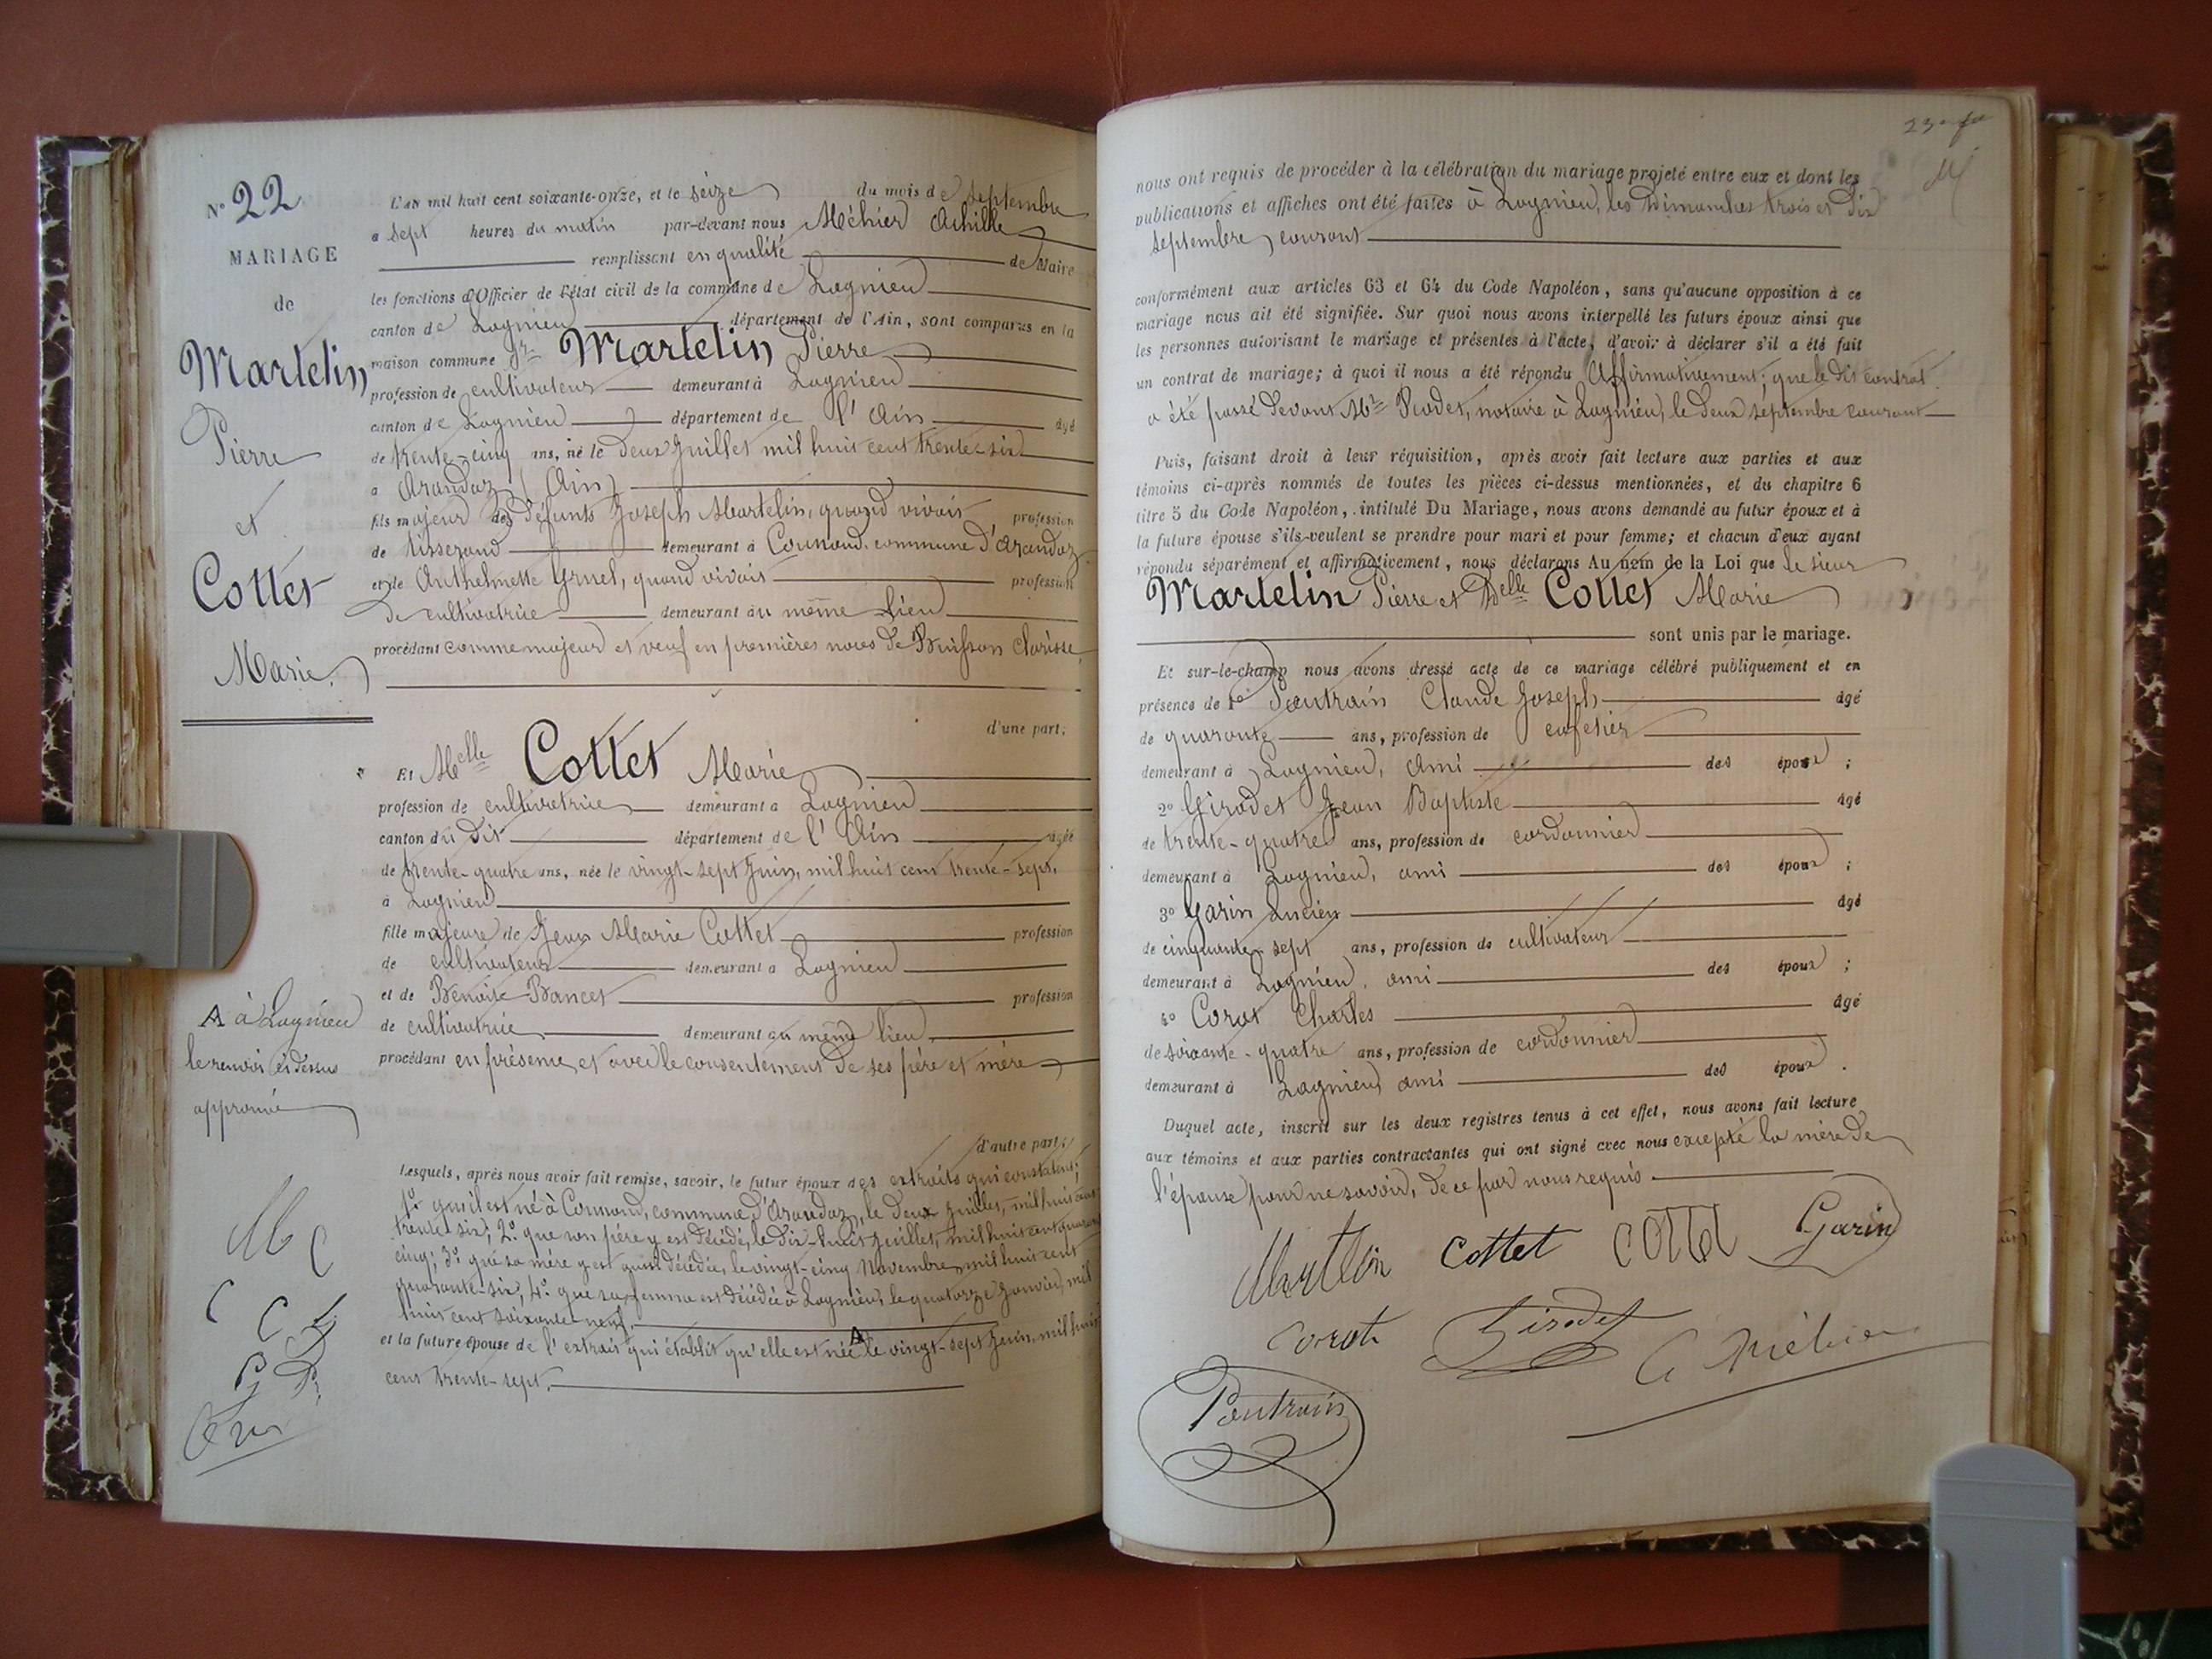 N° 22
MARIAGE
de
Martelin
Pierre
et
Cottet
Marie
A à Lagnieu
le renvoi ci-dessus
approuvé
M C
C C
L'an mil huit cent soixante-onze, et le seize du mois de septembre
a sept heures du matin par-devant nous Méhier Achille
remplissant en qualité de Maire
les fonctions d'Officier de l'état civil de la commune de Lagnieu
canton de Lagnieu département de l'Ain, sont comparus en la
maison commune Sr Martelin Pierre
profession de cultivateur demeurant à Lagnieu
canton de Lagnieu département de l'Ain âgé
de trente-cinq ans, né le deux Juillet mil huit cent trente-six
a Arandaz (Ain)
fils majeur des défunts Joseph Martelin, quand vivait profession
de tisserand demeurant à Counand, commune d'Arandaz
et de Anthelmette Gruel, quand vivait profession
de cultivatrice demeurant au même lieu
procédant comme majeur et veuf en premières noces de Buisson Clarisse
d'une part;
Et Melle Cottet Marie
profession de cultivatrice demeurant a Lagnieu
canton du dit département de l'Ain âgée
de trente-quatre ans, née le vingt-sept Juin, mil huit cent trente-sept,
à Lagnieu
fille majeure de Jean Marie Cottet profession
de cultivateur demeurant a Lagnieu
et de Benoite Bancet profession
de cultivatrice demeurant au même lieu
procédant en présence et avec le consentement de ses père et mère
d'autre part;
Lesquels, après nous avoir fait remise, savoir, le futur époux des extraits qui constatent;
1° qu'il est né à Counand, commune d'Arandaz, le deux Juillet, mil huit cent
trente six; 2° que son père y est décédé, le dix-huit Juillet, mil huit cent quarante
cinq; 3° que sa mère y est aussi décédée, le vingt-cinq Novembre, mil huit cent
quarante-six; 4° que sa femme est décédée à Lagnieu, le quatorze Janvier, mil
huit cent soixante neuf.
et la future épouse de l'extrait qui établit qu'elle est née A le vingt-sept Juin, mil huit
cent trente-sept.
nous ont requis de procéder à la célébration du mariage projeté entre eux et dont les
publications et affiches ont été faites à Lagnieu, les Dimanches trois et dix
septembre courant
conformément aux articles 63 et 64 du Code Napoléon, sans qu'aucune opposition à ce
mariage nous ait été signifiée. Sur quoi nous avons interpellé les futurs époux ainsi que
les personnes autorisant le mariage et présentes à l'acte, d'avoir à déclarer s'il a été fait
un contrat de mariage; à quoi il nous a été répondu Affirmativement; que le dit contrat
a été passé devant Me Prodet, notaire à Lagnieu, le deux septembre courant
Puis, faisant droit à leur réquisition, après avoir fait lecture aux parties et aux
témoins ci-après nommés de toutes les pièces ci-dessus mentionnées, et du chapitre 6
titre 5 du Code Napoléon, intitulé Du Mariage, nous avons demandé au futur époux et à
la future épouse s'ils veulent se prendre pour mari et pour femme; et chacun d'eux ayant
répondu séparément et affirmativement, nous déclarons Au nom de la Loi que le sieur
Martelin Pierre et Delle Cottet Marie
sont unis par le mariage.
Et sur-le-champ nous avons dressé acte de ce mariage célébré publiquement et en
présence de 1° Pautrain Claude Joseph âgé
de quarante ans, profession de cafetier
demeurant à Lagnieu, ami des époux;
2° Girodet Jean Baptiste âgé
de trente-quatre ans, profession de cordonnier
demeurant à Lagnieu, ami des époux;
3° Garin Lucien âgé
de cinquante-sept ans, profession de cultivateur
demeurant à Lagnieu, ami des époux;
4° Corot Charles âgé
de soixante-quatre ans, profession de cordonnier
demeurant à Lagnieu, ami des époux.
Duquel acte, inscrit sur les deux registres tenus à cet effet, nous avons fait lecture
aux témoins et aux parties contractantes qui ont signé avec nous excepté la mère de
l'épouse pour ne savoir, de ce par nous requis
Martlin Cottet COTTET Garin
Corot Girodet A Méhier
Pautrain